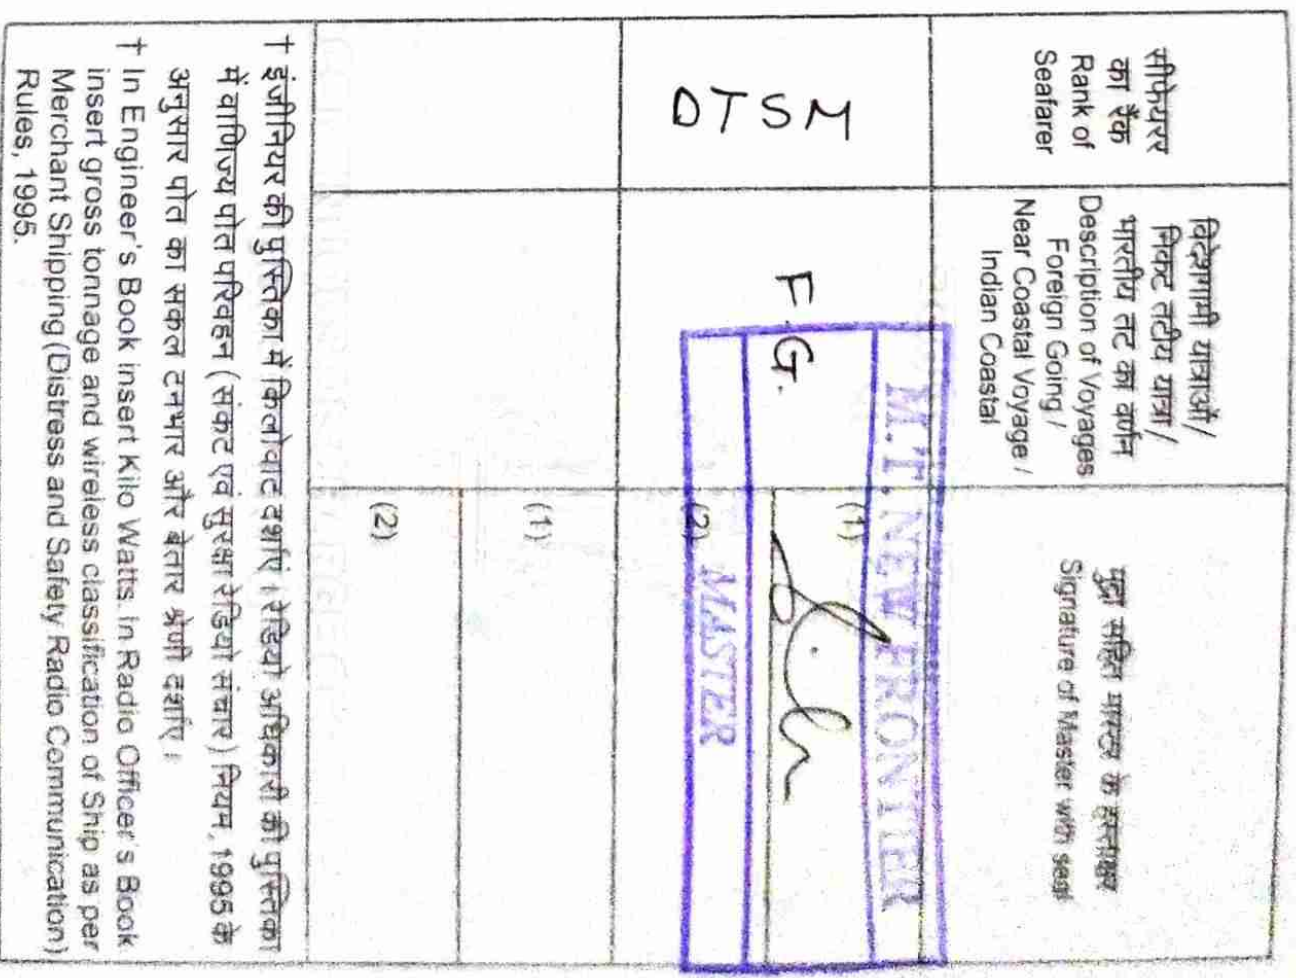 सीफेयरर
का रैंक
Rank of
Seafarer
विदेशगामी यात्राओं/
निकट तटीय यात्रा/
भारतीय तट का वर्णन
Description of Voyages
Foreign Going /
Near Coastal Voyage /
Indian Coastal
मुद्रा सहित मास्टर के हस्ताक्षर
Signature of Master with seal
DTSM
F.G.
M.T. NEW FRONTIER
(1)
(2)
MASTER
(1)
(2)
† इंजीनियर की पुस्तिका में किलोवाट दर्शाएं। रेडियो अधिकारी की पुस्तिका
में वाणिज्य पोत परिवहन (संकट एवं सुरक्षा रेडियो संचार) नियम, 1995 के
अनुसार पोत का सकल टनभार और बेतार श्रेणी दर्शाएं।
† In Engineer's Book insert Kilo Watts. In Radio Officer's Book
insert gross tonnage and wireless classification of Ship as per
Merchant Shipping (Distress and Safety Radio Communication)
Rules, 1995.